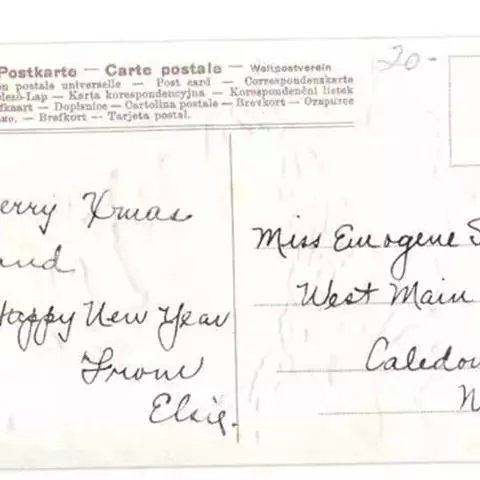 Postkarte — Carte postale — Weltpostverein
on postale universelle — Post card — Correspondenzkarte
elező-Lap — Karta korespondencyjna — Korespondenční lístek
efkaart — Dopisnice — Cartolina postale — Brevkort — Отkрытое
— Brefkort — Tarjeta postal.
20-
erry Xmas
and
Happy New Year
From
Elsie.
Miss Emogene S
West Main
Caledon
N